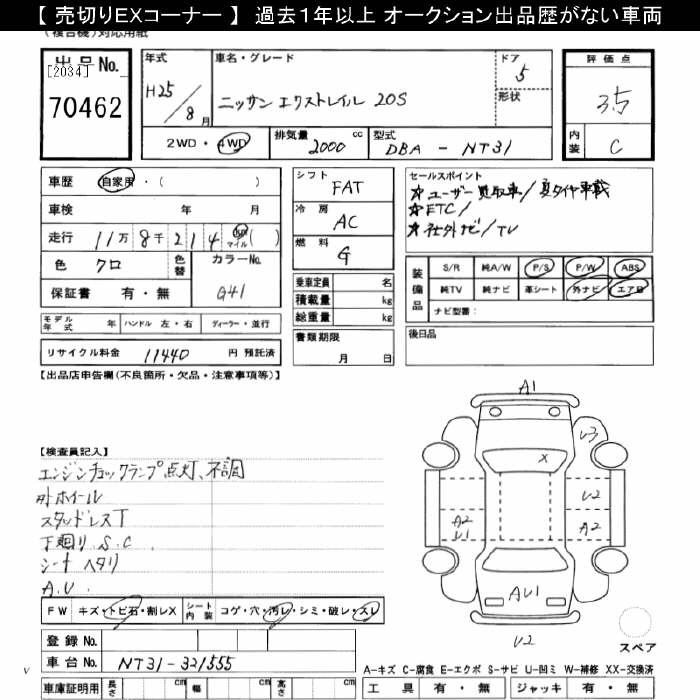 【 売切りEXコーナー 】 過去1年以上 オークション出品歴がない車両
(複合機)対応用紙
出品No.
[2034]
70462
年式
H25/8月
車名・グレード
ニッサン エクストレイル 20S
ドア
5
形状
2WD・4WD
排気量 2000 cc
型式
DBA - NT31
評価点
3.5
内装 C
車歴 自家用・( )
車検 年 月
走行 11万8千214 km マイル ( )
色 クロ
色替
カラーNo. G41
保証書 有・無
モデル年式 年 ハンドル 左・右 ディーラー・並行
リサイクル料金 11440 円 預託済
シフト FAT
冷房 AC
燃料 G
乗車定員 名
積載量 kg
総重量 kg
書類期限
月 日
セールスポイント
☆ユーザー買取車/夏タイヤ車載
☆ETC/
☆社外ナビ/TV
装備品
S/R 純A/W P/S P/W ABS
純TV 純ナビ 革シート 外ナビ エアB
ナビ型番:
後日品
【出品店申告欄(不良箇所・欠品・注意事項等)】
【検査員記入】
エンジンチェックランプ点灯、不調
外ホイール
スタッドレスT
下廻りS.C
シートヘタリ
A.U
FW キズ・トビ石・割レX
シート内装 コゲ・穴・汚レ・シミ・破レ・スレ
登録No.
車台No. NT31-321555
車庫証明用 長さ cm 幅 cm 高さ cm
A1
U3
X
U2
A2
U1
A2
AU1
U2
スペア
V
A-キズ C-腐食 E-エクボ S-サビ U-凹ミ W-補修 XX-交換済
工具 有・無 ジャッキ 有・無